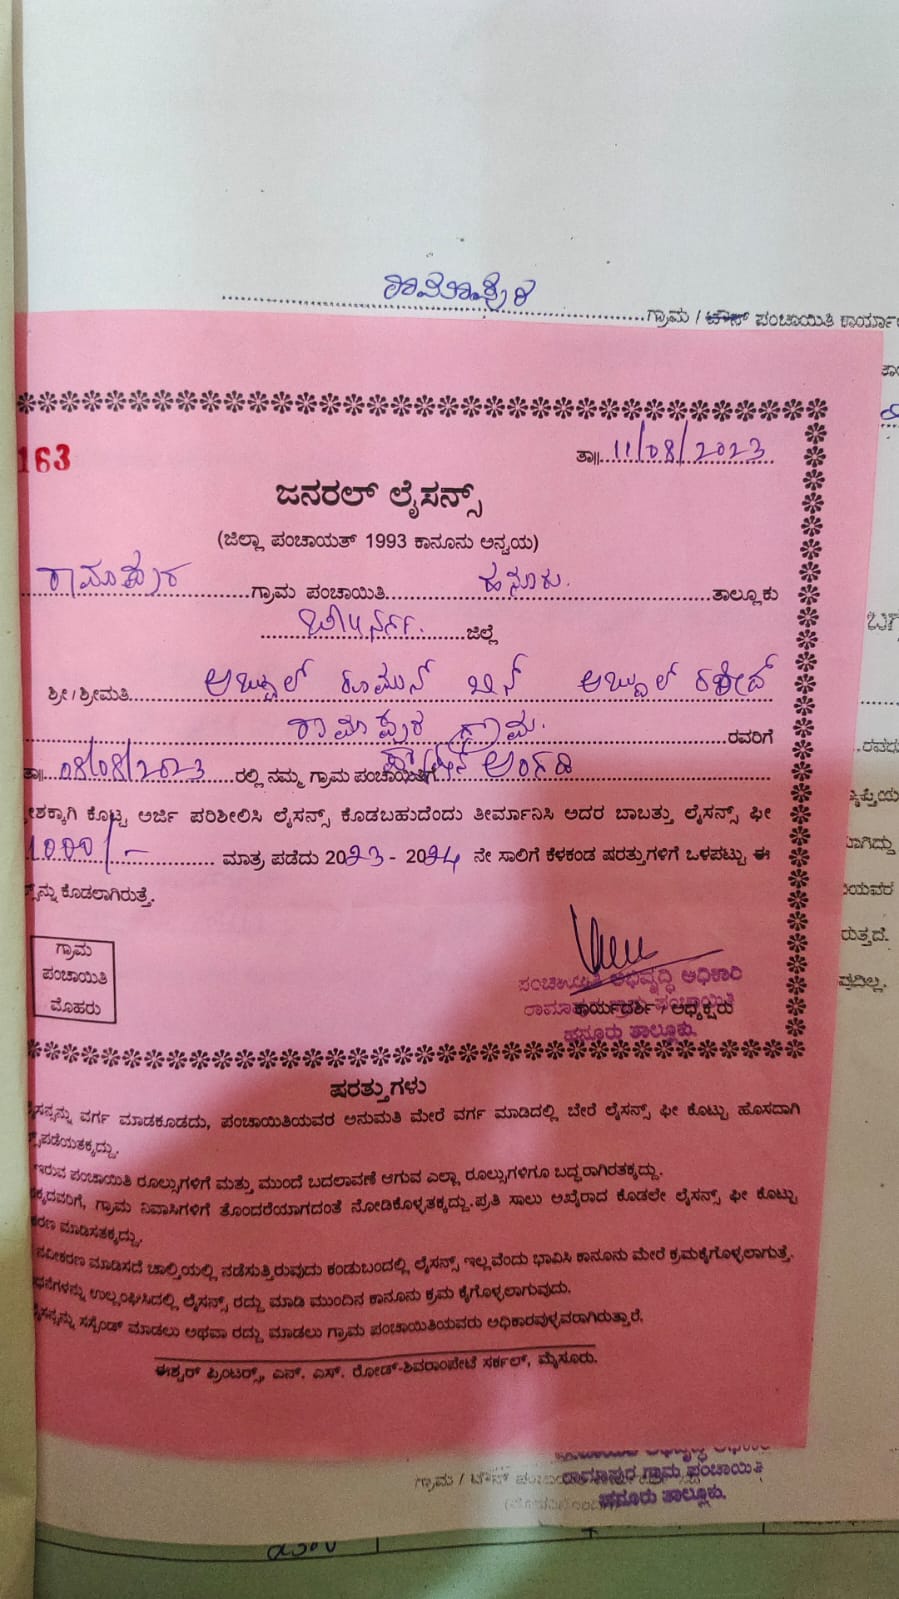 ರಾಮಾಪುರ
ಗ್ರಾಮ / ಟೌನ್ ಪಂಚಾಯಿತಿ ಕಾರ್ಯಾ
163
ತಾ॥ 11/08/2023
ಜನರಲ್ ಲೈಸನ್ಸ್
(ಜಿಲ್ಲಾ ಪಂಚಾಯತ್ 1993 ಕಾನೂನು ಅನ್ವಯ)
ರಾಮಾಪುರ ಗ್ರಾಮ ಪಂಚಾಯಿತಿ ಹನೂರು. ತಾಲ್ಲೂಕು
ಜಿಲ್ಲೆ
ಶ್ರೀ / ಶ್ರೀಮತಿ ಅಬ್ದುಲ್ ಬಿನ್ ಅಬ್ದುಲ್ ರಶೀದ್
ರಾಮಾಪುರ ಗ್ರಾಮ. ರವರಿಗೆ
ತಾ॥ 08/08/2023 ರಲ್ಲಿ ನಮ್ಮ ಗ್ರಾಮ ಪಂಚಾಯಿತಿಗೆ ಅಂಗಡಿ
ಕೊಟ್ಟ ಅರ್ಜಿ ಪರಿಶೀಲಿಸಿ ಲೈಸನ್ಸ್ ಕೊಡಬಹುದೆಂದು ತೀರ್ಮಾನಿಸಿ ಅದರ ಬಾಬತ್ತು ಲೈಸನ್ಸ್ ಫೀ
1000/- ಮಾತ್ರ ಪಡೆದು 2023 - 2024 ನೇ ಸಾಲಿಗೆ ಕೆಳಕಂಡ ಷರತ್ತುಗಳಿಗೆ ಒಳಪಟ್ಟು ಈ
ಕೊಡಲಾಗಿರುತ್ತೆ.
ಗ್ರಾಮ
ಪಂಚಾಯಿತಿ
ಮೊಹರು
ಪಂಚಾಯಿತಿ ಅಭಿವೃದ್ಧಿ ಅಧಿಕಾರಿ
ರಾಮಾಪುರ ಗ್ರಾಮ ಪಂಚಾಯಿತಿ
ಕಾರ್ಯದರ್ಶಿ / ಅಧ್ಯಕ್ಷರು
ಹನೂರು ತಾಲ್ಲೂಕು.
ಷರತ್ತುಗಳು
ವರ್ಗ ಮಾಡಕೂಡದು, ಪಂಚಾಯಿತಿಯವರ ಅನುಮತಿ ಮೇರೆ ವರ್ಗ ಮಾಡಿದಲ್ಲಿ ಬೇರೆ ಲೈಸನ್ಸ್ ಫೀ ಕೊಟ್ಟು ಹೊಸದಾಗಿ
ಇರುವ ಪಂಚಾಯಿತಿ ರೂಲ್ಸುಗಳಿಗೆ ಮತ್ತು ಮುಂದೆ ಬದಲಾವಣೆ ಆಗುವ ಎಲ್ಲಾ ರೂಲ್ಸುಗಳಿಗೂ ಬದ್ಧರಾಗಿರತಕ್ಕದ್ದು.
ಗ್ರಾಮ ನಿವಾಸಿಗಳಿಗೆ ತೊಂದರೆಯಾಗದಂತೆ ನೋಡಿಕೊಳ್ಳತಕ್ಕದ್ದು. ಪ್ರತಿ ಸಾಲು ಅಖೈರಾದ ಕೂಡಲೇ ಲೈಸನ್ಸ್ ಫೀ ಕೊಟ್ಟು
ಮಾಡಿಸತಕ್ಕದ್ದು.
ನವೀಕರಣ ಮಾಡಿಸದೆ ಚಾಲ್ತಿಯಲ್ಲಿ ನಡೆಸುತ್ತಿರುವುದು ಕಂಡುಬಂದಲ್ಲಿ ಲೈಸನ್ಸ್ ಇಲ್ಲವೆಂದು ಭಾವಿಸಿ ಕಾನೂನು ಮೇರೆ ಕ್ರಮಕೈಗೊಳ್ಳಲಾಗುತ್ತೆ.
ಉಲ್ಲಂಘಿಸಿದಲ್ಲಿ ಲೈಸನ್ಸ್ ರದ್ದು ಮಾಡಿ ಮುಂದಿನ ಕಾನೂನು ಕ್ರಮ ಕೈಗೊಳ್ಳಲಾಗುವುದು.
ಸಸ್ಪೆಂಡ್ ಮಾಡಲು ಅಥವಾ ರದ್ದು ಮಾಡಲು ಗ್ರಾಮ ಪಂಚಾಯಿತಿಯವರು ಅಧಿಕಾರವುಳ್ಳವರಾಗಿರುತ್ತಾರೆ.
ಈಶ್ವರ್ ಪ್ರಿಂಟರ್ಸ್, ಎನ್. ಎಸ್. ರೋಡ್-ಶಿವರಾಂಪೇಟೆ ಸರ್ಕಲ್, ಮೈಸೂರು.
ರಾಮಾಪುರ ಗ್ರಾಮ ಪಂಚಾಯಿತಿ
ಹನೂರು ತಾಲ್ಲೂಕು.